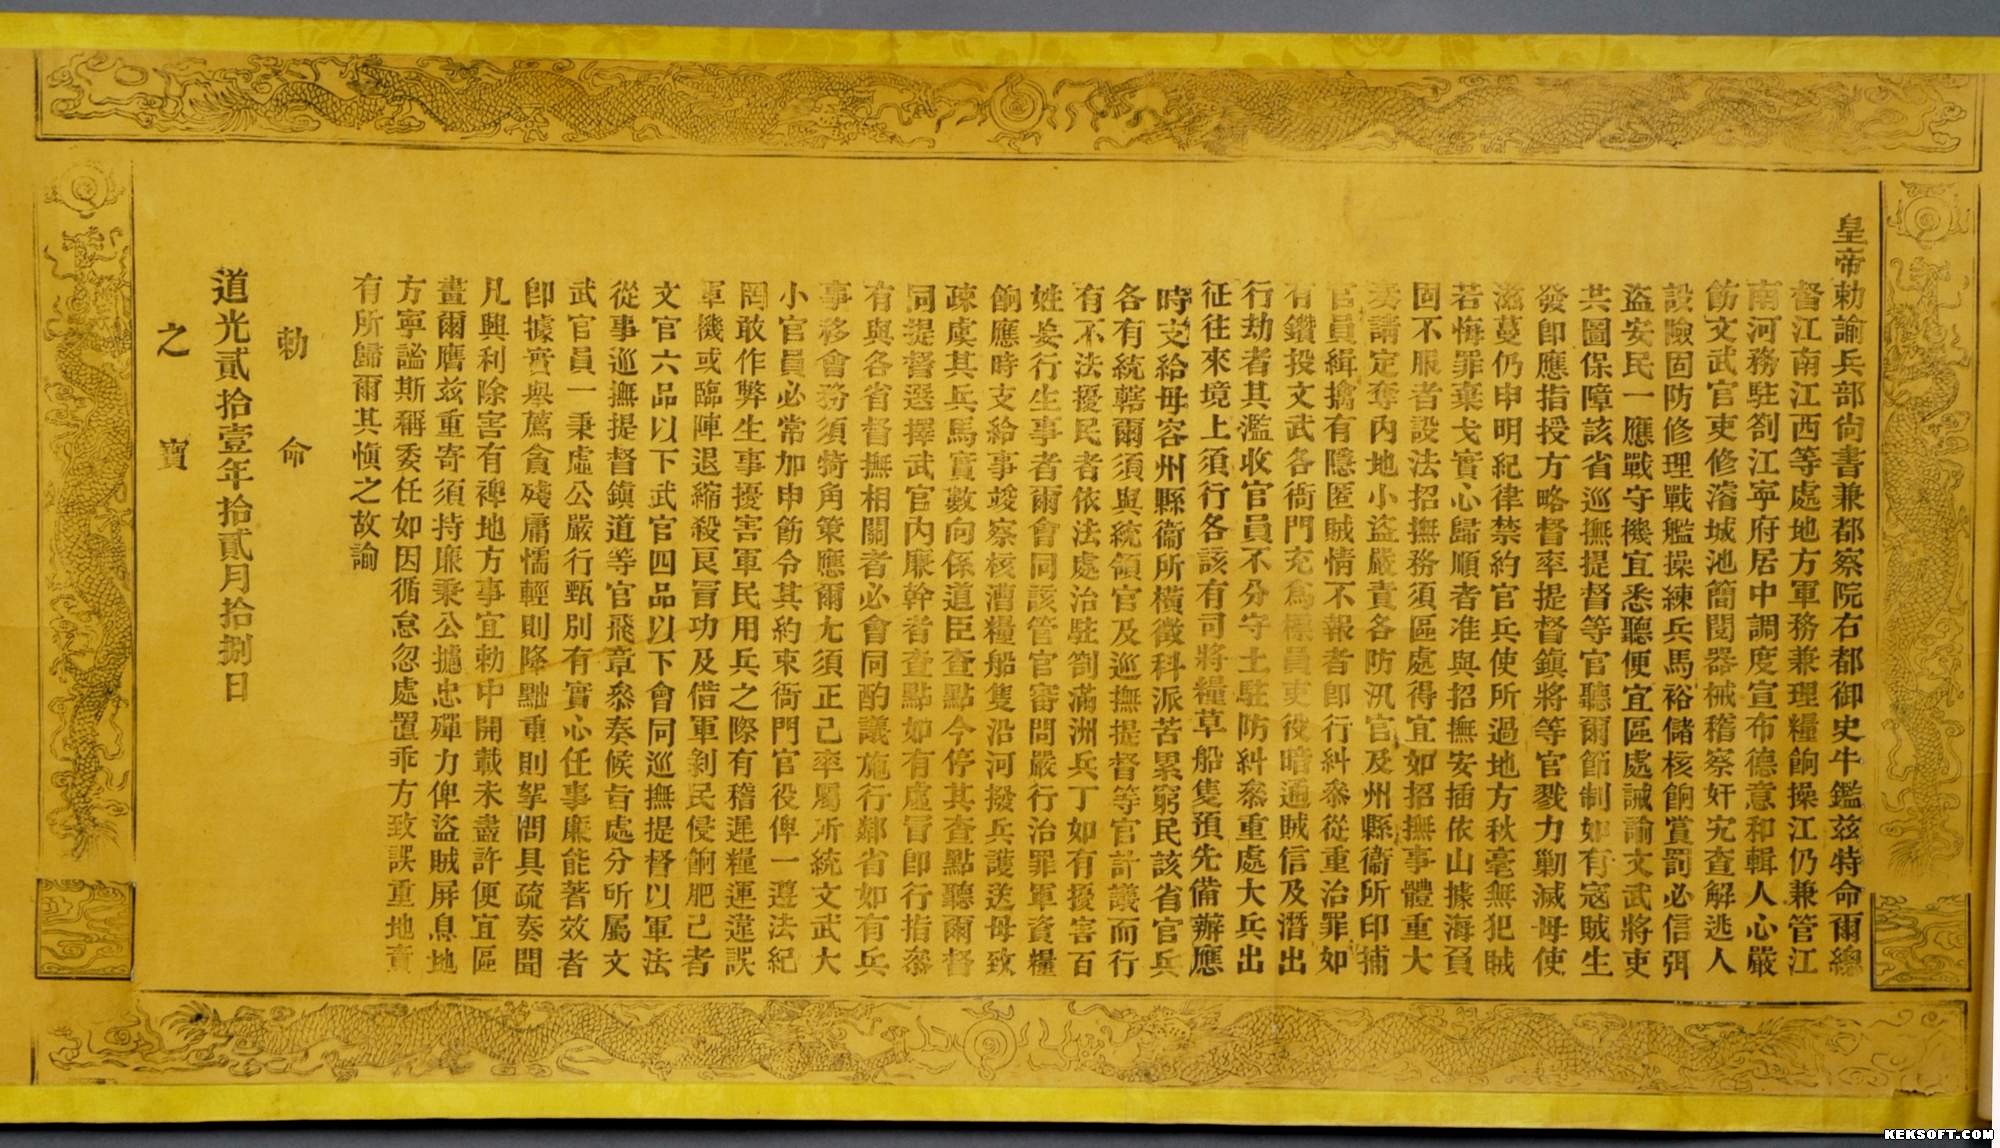 皇帝勅諭兵部尙書兼都察院右都御史牛鑑茲特命爾總
督江南江西等處地方軍務兼理糧餉操江仍兼管江
南河務駐劄江寧府居中調度宣布德意和輯人心嚴
飭文武官吏修濬城池簡閱器械稽察奸宄查解逃人
設險固防修理戰艦操練兵馬裕儲核餉賞罰必信弭
盜安民一應戰守機宜悉聽便宜區處誡諭文武將吏
共圖保障該省巡撫提督等官聽爾節制如有寇賊生
發卽應指授方略督率提督鎮將等官戮力勦滅毋使
滋蔓仍申明紀律禁約官兵使所過地方秋毫無犯賊
若悔罪棄戈實心歸順者准與招撫安插依山據海負
固不服者設法招撫務須區處得宜如招撫事體重大
奏請定奪內地小盜嚴責各防汛官及州縣衞所印捕
官員緝擒有隱匿賊情不報者卽行糾叅從重治罪如
有鑽投文武各衙門充爲標員吏役暗通賊信及潛出
行劫者其濫收官員不分守土駐防糾叅重處大兵出
征往來境上須行各該有司將糧草船隻預先備辦應
時支給毋容州縣衞所橫徵科派苦累窮民該省官兵
各有統轄爾須與統領官及巡撫提督等官計議而行
有不法擾民者依法處治駐劄滿洲兵丁如有擾害百
姓妄行生事者爾會同該管官審問嚴行治罪軍資糧
餉應時支給事竣察核漕糧船隻沿河撥兵護送毋致
疎虞其兵馬實數向係道臣查點今停其查點聽爾督
同提督選擇武官內廉幹者查點如有虛冒卽行指叅
有與各省督撫相關者必會同酌議施行鄰省如有兵
事移會務須犄角策應爾尤須正己率屬所統文武大
小官員必常加申飭令其約束衙門官役俾一遵法紀
罔敢作弊生事擾害軍民用兵之際有稽遲糧運違誤
軍機或臨陣退縮殺良冒功及借軍剝民侵餉肥己者
文官六品以下武官四品以下會同巡撫提督以軍法
從事巡撫提督鎮道等官飛章叅奏候旨處分所屬文
武官員一秉虛公嚴行甄別有實心任事廉能著效者
卽據實舉薦貪殘庸懦輕則降黜重則拏問具疏奏聞
凡興利除害有裨地方事宜勅中開載未盡許便宜區
畫爾膺茲重寄須持廉秉公攄忠殫力俾盜賊屏息地
方寧謐斯稱委任如因循怠忽處置乖方致誤重地責
有所歸爾其愼之故諭
勅命
道光貳拾壹年拾貳月拾捌日
之寶
KEKSOFT.COM